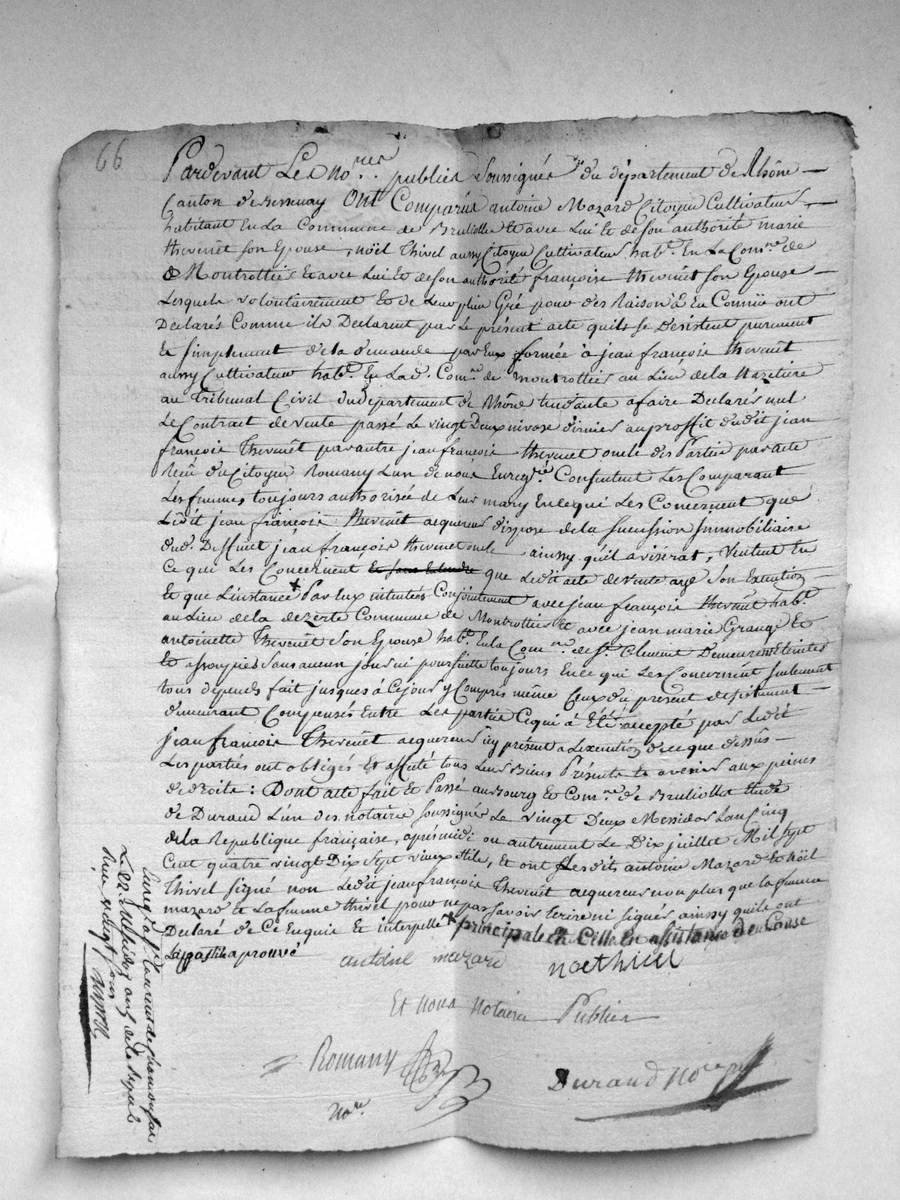 66
Pardevant Les No.res publics Soussignés du département de Rhône
Canton de Bessenay Ont Comparus antoine Mazard Citoyen Cultivateur
habitant En La Commune de Brullolle et avec Lui et de son authorité marie
thevenet son Epouse, nöël Thivel aussy Citoyen Cultivateur hab.t En La Com.ne de
de Montrottier et avec Lui Et de son authorité françoise thevenet son Epouse
Lesquels volontairement Et de Leur plein Gré pour des Raison à Eux Connüe ont
Declarés Comme ils Declarent par Le présent acte quils se desistent purement
Et simplement de la demande par Eux formée à jean françois thevenet
aussy Cultivateur hab.t En Lad. Com.ne de montrottier au Lieu de la
au Tribunal Civil du département de Rhône tendante a faire Declarés nul
Le Contract de vente passé Le vingt Deux nivose dernier au proffit dudit jean
françois Thevenet par autre jean françois thevenet oncle des Partie par acte
Reçu du Citoyen Romany L'un de nous Enreg.tré Consentent Les Comparant
Les femmes toujours authorisée de Leurs mary En ce qui Les Concernent que
Ledit jean françois thevenet acquereur dispose de la succession Immobiliaire
dud. Deffunt jean françois thevenet oncle ainssy quil aviserat, veulent En
Ce qui Les Concernent que Ledit acte de vente aye Son Execution
Et que Linstance * Par Eux intentées Conjointement avec jean françois thevenet hab.t
au Lieu de la dezerte Commune de Montrottier Et avec jean marie Grange Et
antoinette Thevenet Son Epouse hab.t En la Com.ne de S.t Clement Demeure Eteintes
Et assoupies sans aucun jours ni poursuitte toujours En ce qui Les Concernent seulement
tous dépends fait jusques à Cejour y Compris même Ceux du present desistement
demeurant Compensés Entre Les partie Ce qui à Eté accepté par Ledit
jean françois Thevenet acquereur icy présent a Lexecution de ce que dessus
Les parties ont obligés Et affecté tous Leurs Biens Présents et avenirs aux peines
de droits : Dont acte fait Et Passé au Bourg Et Com.ne de Brulliolle Etude
de Durand L'un des notaire soussignés Le vingt Deux Messidor Lan Cinq
de La Republique française, après midi ou autrement Le Dix juillet Mil sept
Cent quatre vingt Dix Sept vieux stile, Et ont Lesdits antoine Mazard Et nöël
Thivel signé non Ledit jean françois Thevenet acquereur non plus que la femme
mazard et La femme thivel pour ne pas savoir Ecrire ni signer ainssy quils ont
Declaré de Ce Enquis Et interpellé * principale Et Celle En assistance de Cause
La postille aprouvé
antoine mazard
noethivel
Et Nous Notaires Publics
Romany
No.re
Durand No.re
Le 22 Messidor an 5 de la Repub